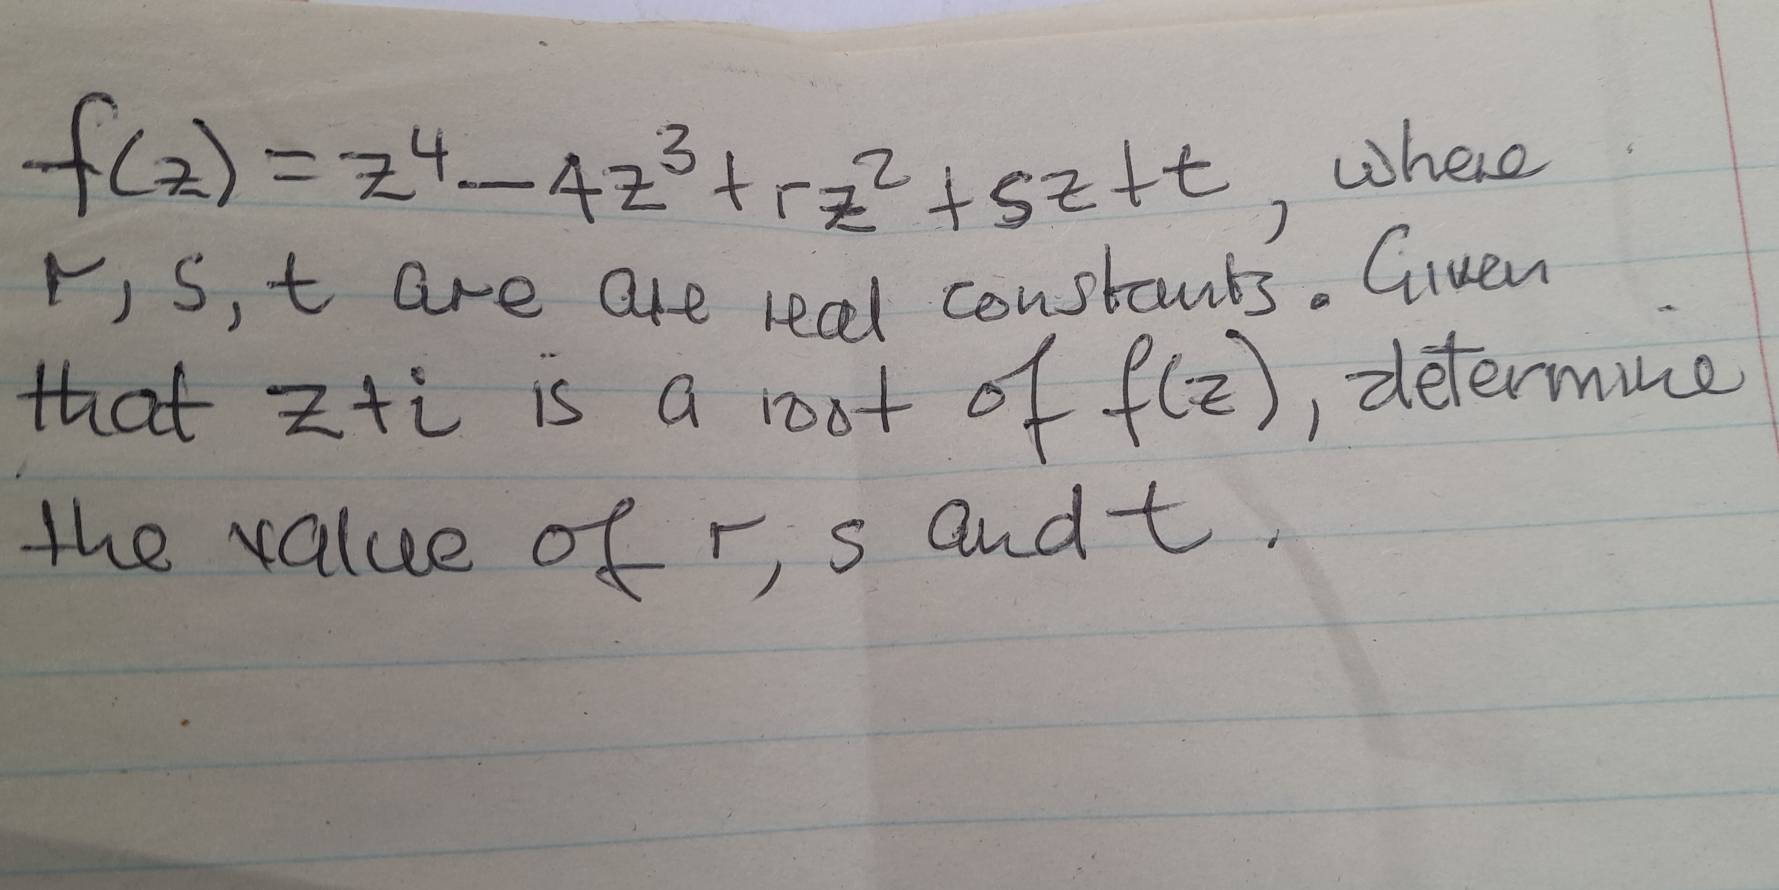 f(z) = z⁴ - 4z³ + rz² + sz + t, where
r, s, t are are real constants. Given
that z+i is a root of f(z), determine
the value of r, s and t.